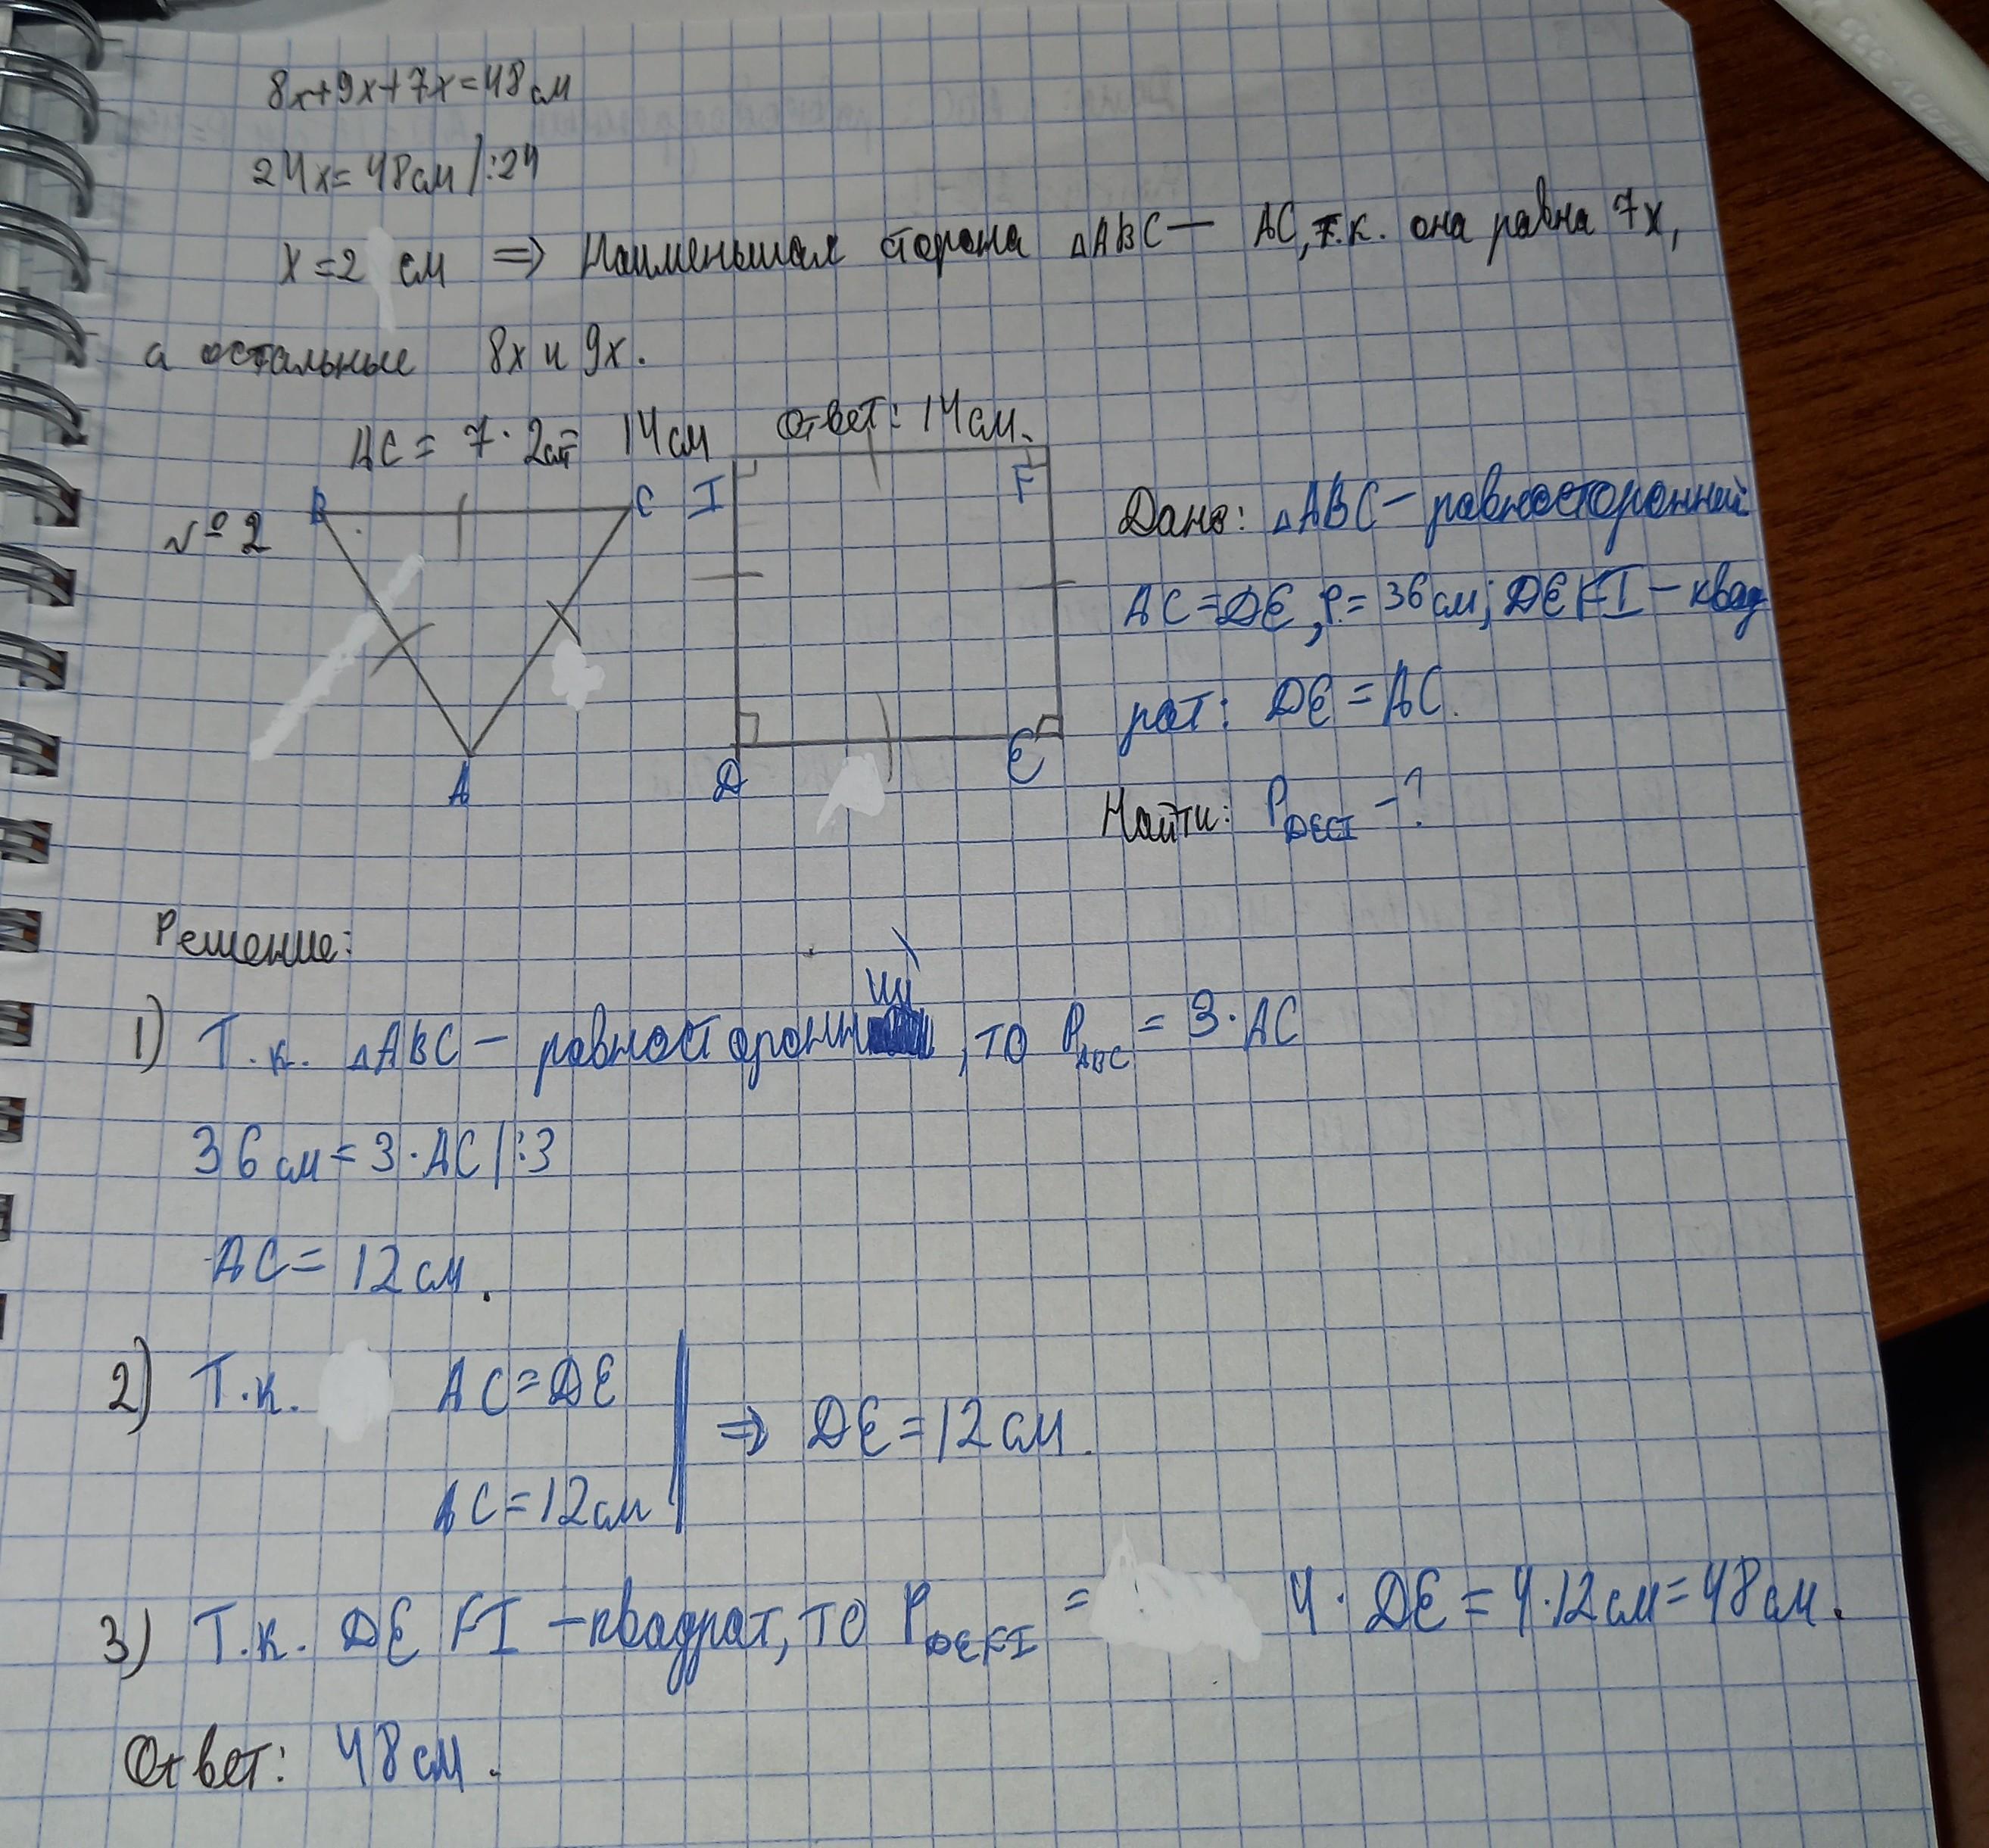 8x+9x+7x=48см
24x=48см |:24
x=2 см => Наименьшая сторона △ABC — AC, т.к. она равна 7x,
а остальные 8x и 9x.
AC = 7 · 2см = 14см Ответ: 14см.
№2
B C I F
A D E
Дано: △ABC – равносторонний
AC=DE, P=36см; DEFI – квад
рат: DE=AC.
Найти: P DECI –?
Решение:
1) Т.к. △ABC – равносторонний, то P ABC = 3·AC
36см=3·AC |:3
AC=12см.
2) Т.к. AC=DE
AC=12см
=> DE=12см.
3) Т.к. DEFI – квадрат, то P DEFI = 4·DE=4·12см=48см.
Ответ: 48см.